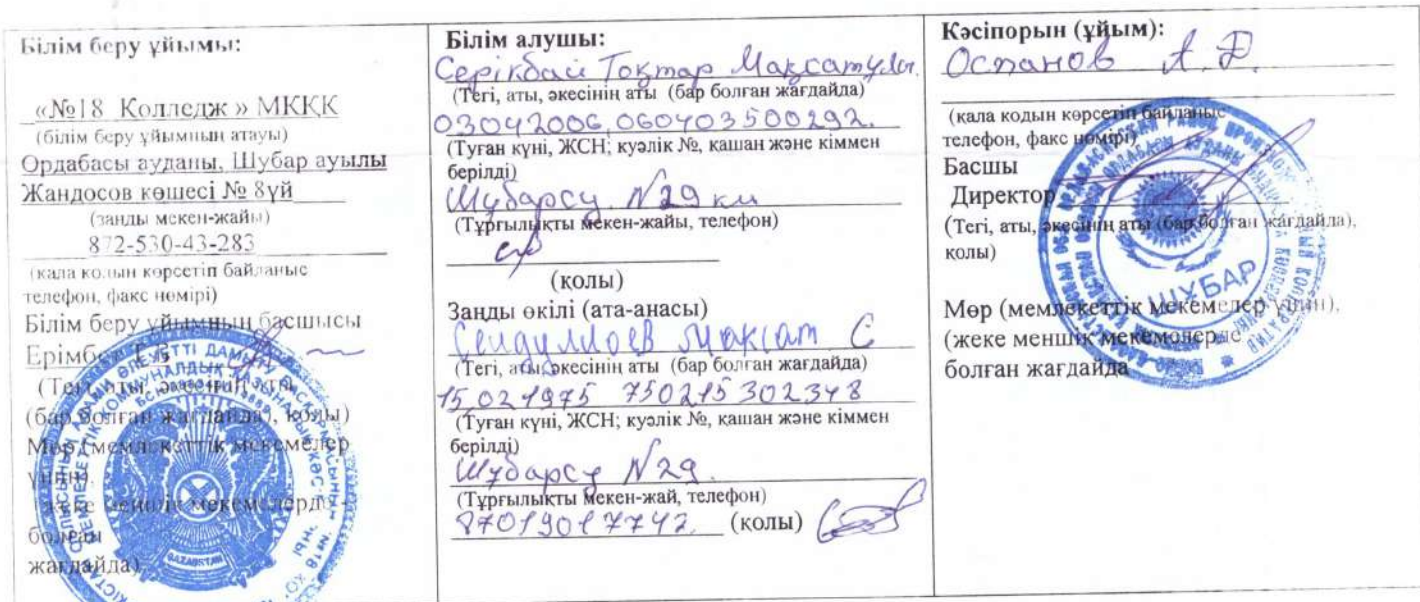 Білім беру ұйымы:
«№18 Колледж » МКҚК
(білім беру ұйымның атауы)
Ордабасы ауданы, Шубар ауылы
Жандосов көшесі № 8үй
(заңды мекен-жайы)
872-530-43-283
(кала кодын көрсетіп байланыс
телефон, факс нөмірі)
Білім беру ұйымның басшысы
Ерімбет
(Тегі, аты, әкесінің аты
(бар болған жағдайда), қолы)
Мөр (мемлекеттік мекемелер
үшін),
жеке меншік мекемелерде -
болған
жағдайда)
Білім алушы:
Серікбай Тоқтар Мақсатұлы.
(Тегі, аты, әкесінің аты (бар болған жағдайда)
03042006, 060403500292.
(Туған күні, ЖСН; куәлік №, қашан және кіммен
берілді)
Шубарсу N29 км
(Тұрғылықты мекен-жайы, телефон)
(қолы)
Заңды өкілі (ата-анасы)
Сейдуллаев Мақсат С
(Тегі, аты, әкесінің аты (бар болған жағдайда)
15.021975 750215302348
(Туған күні, ЖСН; куәлік №, қашан және кіммен
берілді)
Шубарсу N29.
(Тұрғылықты мекен-жай, телефон)
87019017742. (қолы)
Кәсіпорын (ұйым):
Оспанов А.Д.
(кала кодын көрсетіп байланыс
телефон, факс нөмірі)
Басшы
Директор
(Тегі, аты, әкесінің аты (бар болған жағдайда),
қолы)
ШУБАР
Мөр (мемлекеттік мекемелер үшін),
(жеке меншік мекемелерде
болған жағдайда
QAZAQSTAN